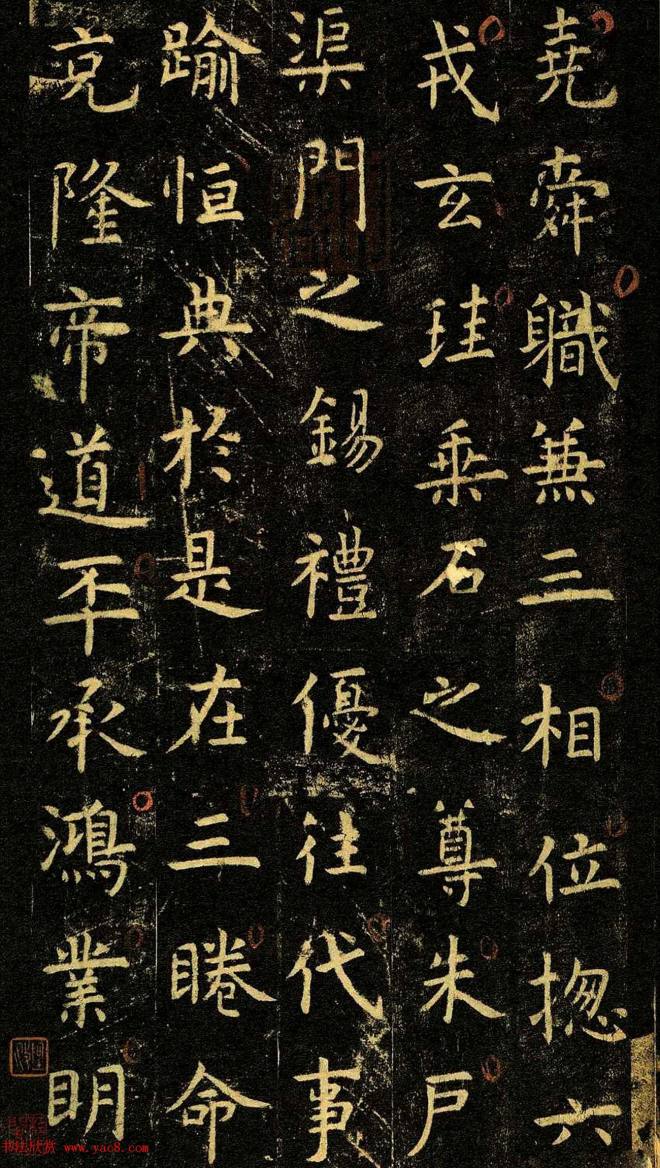 堯舜職兼三相位揔六
戎玄珪乗石之尊朱戶
渠門之錫禮優往代事
踰恒典於是在三睠命
克隆帝道丕承鴻業明
书法欣赏 www.yac8.com